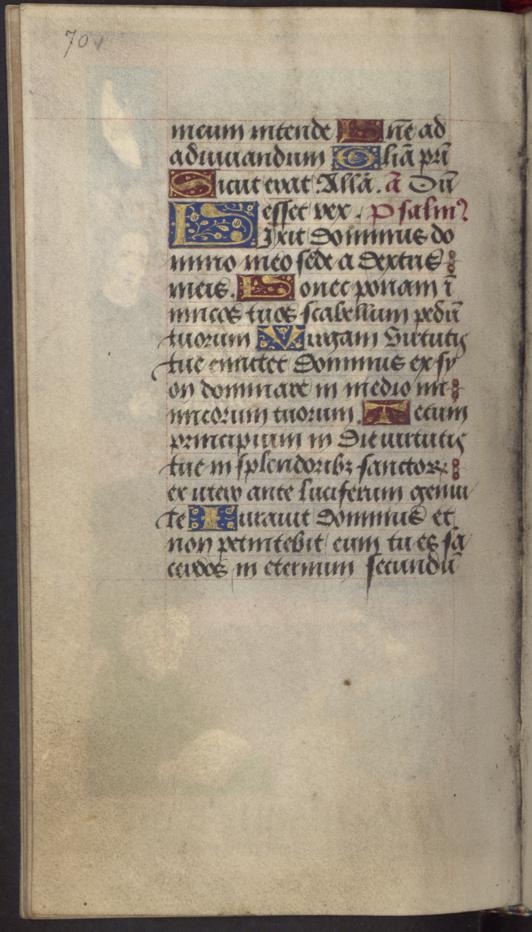 70v
meum intende Dñe ad
adiuuandum Gliã pri
Sicut erat Allã. ã Dũ
esset rex. Psalm9
Dixit Dominus do
mino meo sede a dextris
meis. Donec ponam ĩ
imicos tuos scabellum pedũ
tuorum Virgam Virtutis
tue emittet Dominus ex sy
on dominare in medio ini
micorum tuorum. Tecum
principium in die uirtutis
tue in splendoribz sanctorꝝ
ex utero ante luciferum genui
te Iurauit Dominus et
non penitebit eum tu es sa
cerdos in eternum secundũ